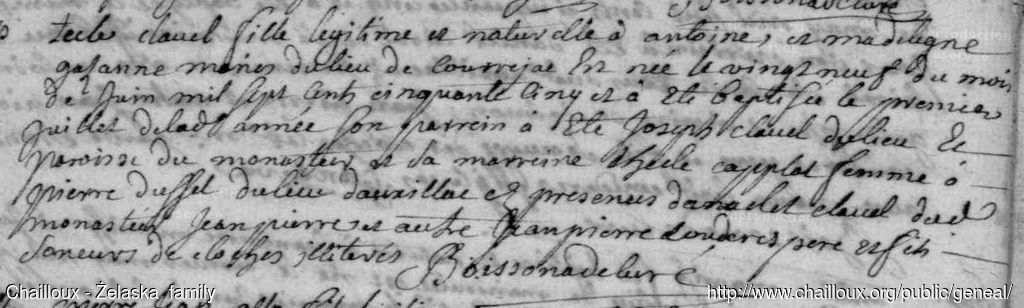 Boissonade curé
tecle clauel fille legitime et naturelle à antoine, et madelegne
gasanne mariés du lieu de courrejac Est née le vingt neuf du mois
de Juin mil sept cents cinquante cinq et à Eté baptisée le premier
Juillet de lad année son parrein à Eté Joseph clauel du lieu Et
paroisse du monastere et sa marreine thecle capplat femme à
pierre dussel du lieu dauxillac Et presences danaclet clauel dud
monastere Jean pierre et autre Jean pierre pere et fils
Soneurs de cloches, illiterés Boissonade curé
Chailloux - Želaska family
http://www.chailloux.org/public/geneal/